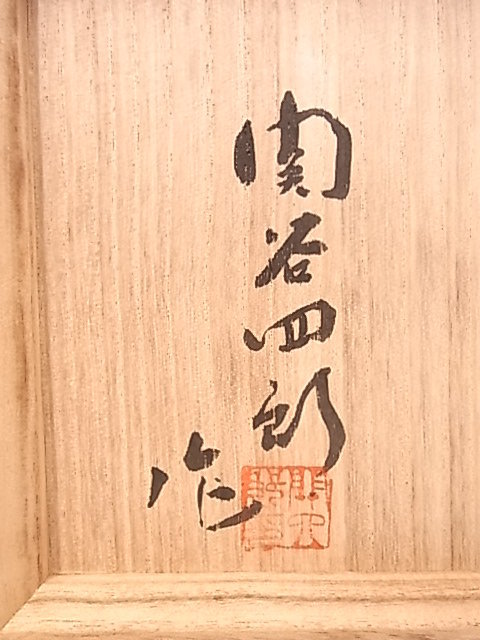 関谷四郎
作